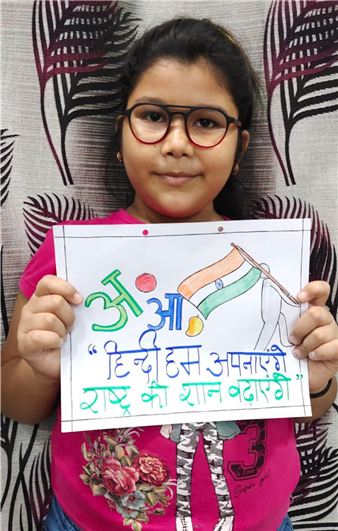 अ आ
"हिन्दी हम अपनाएंगे
राष्ट्र की शान बढ़ाएंगे"
3